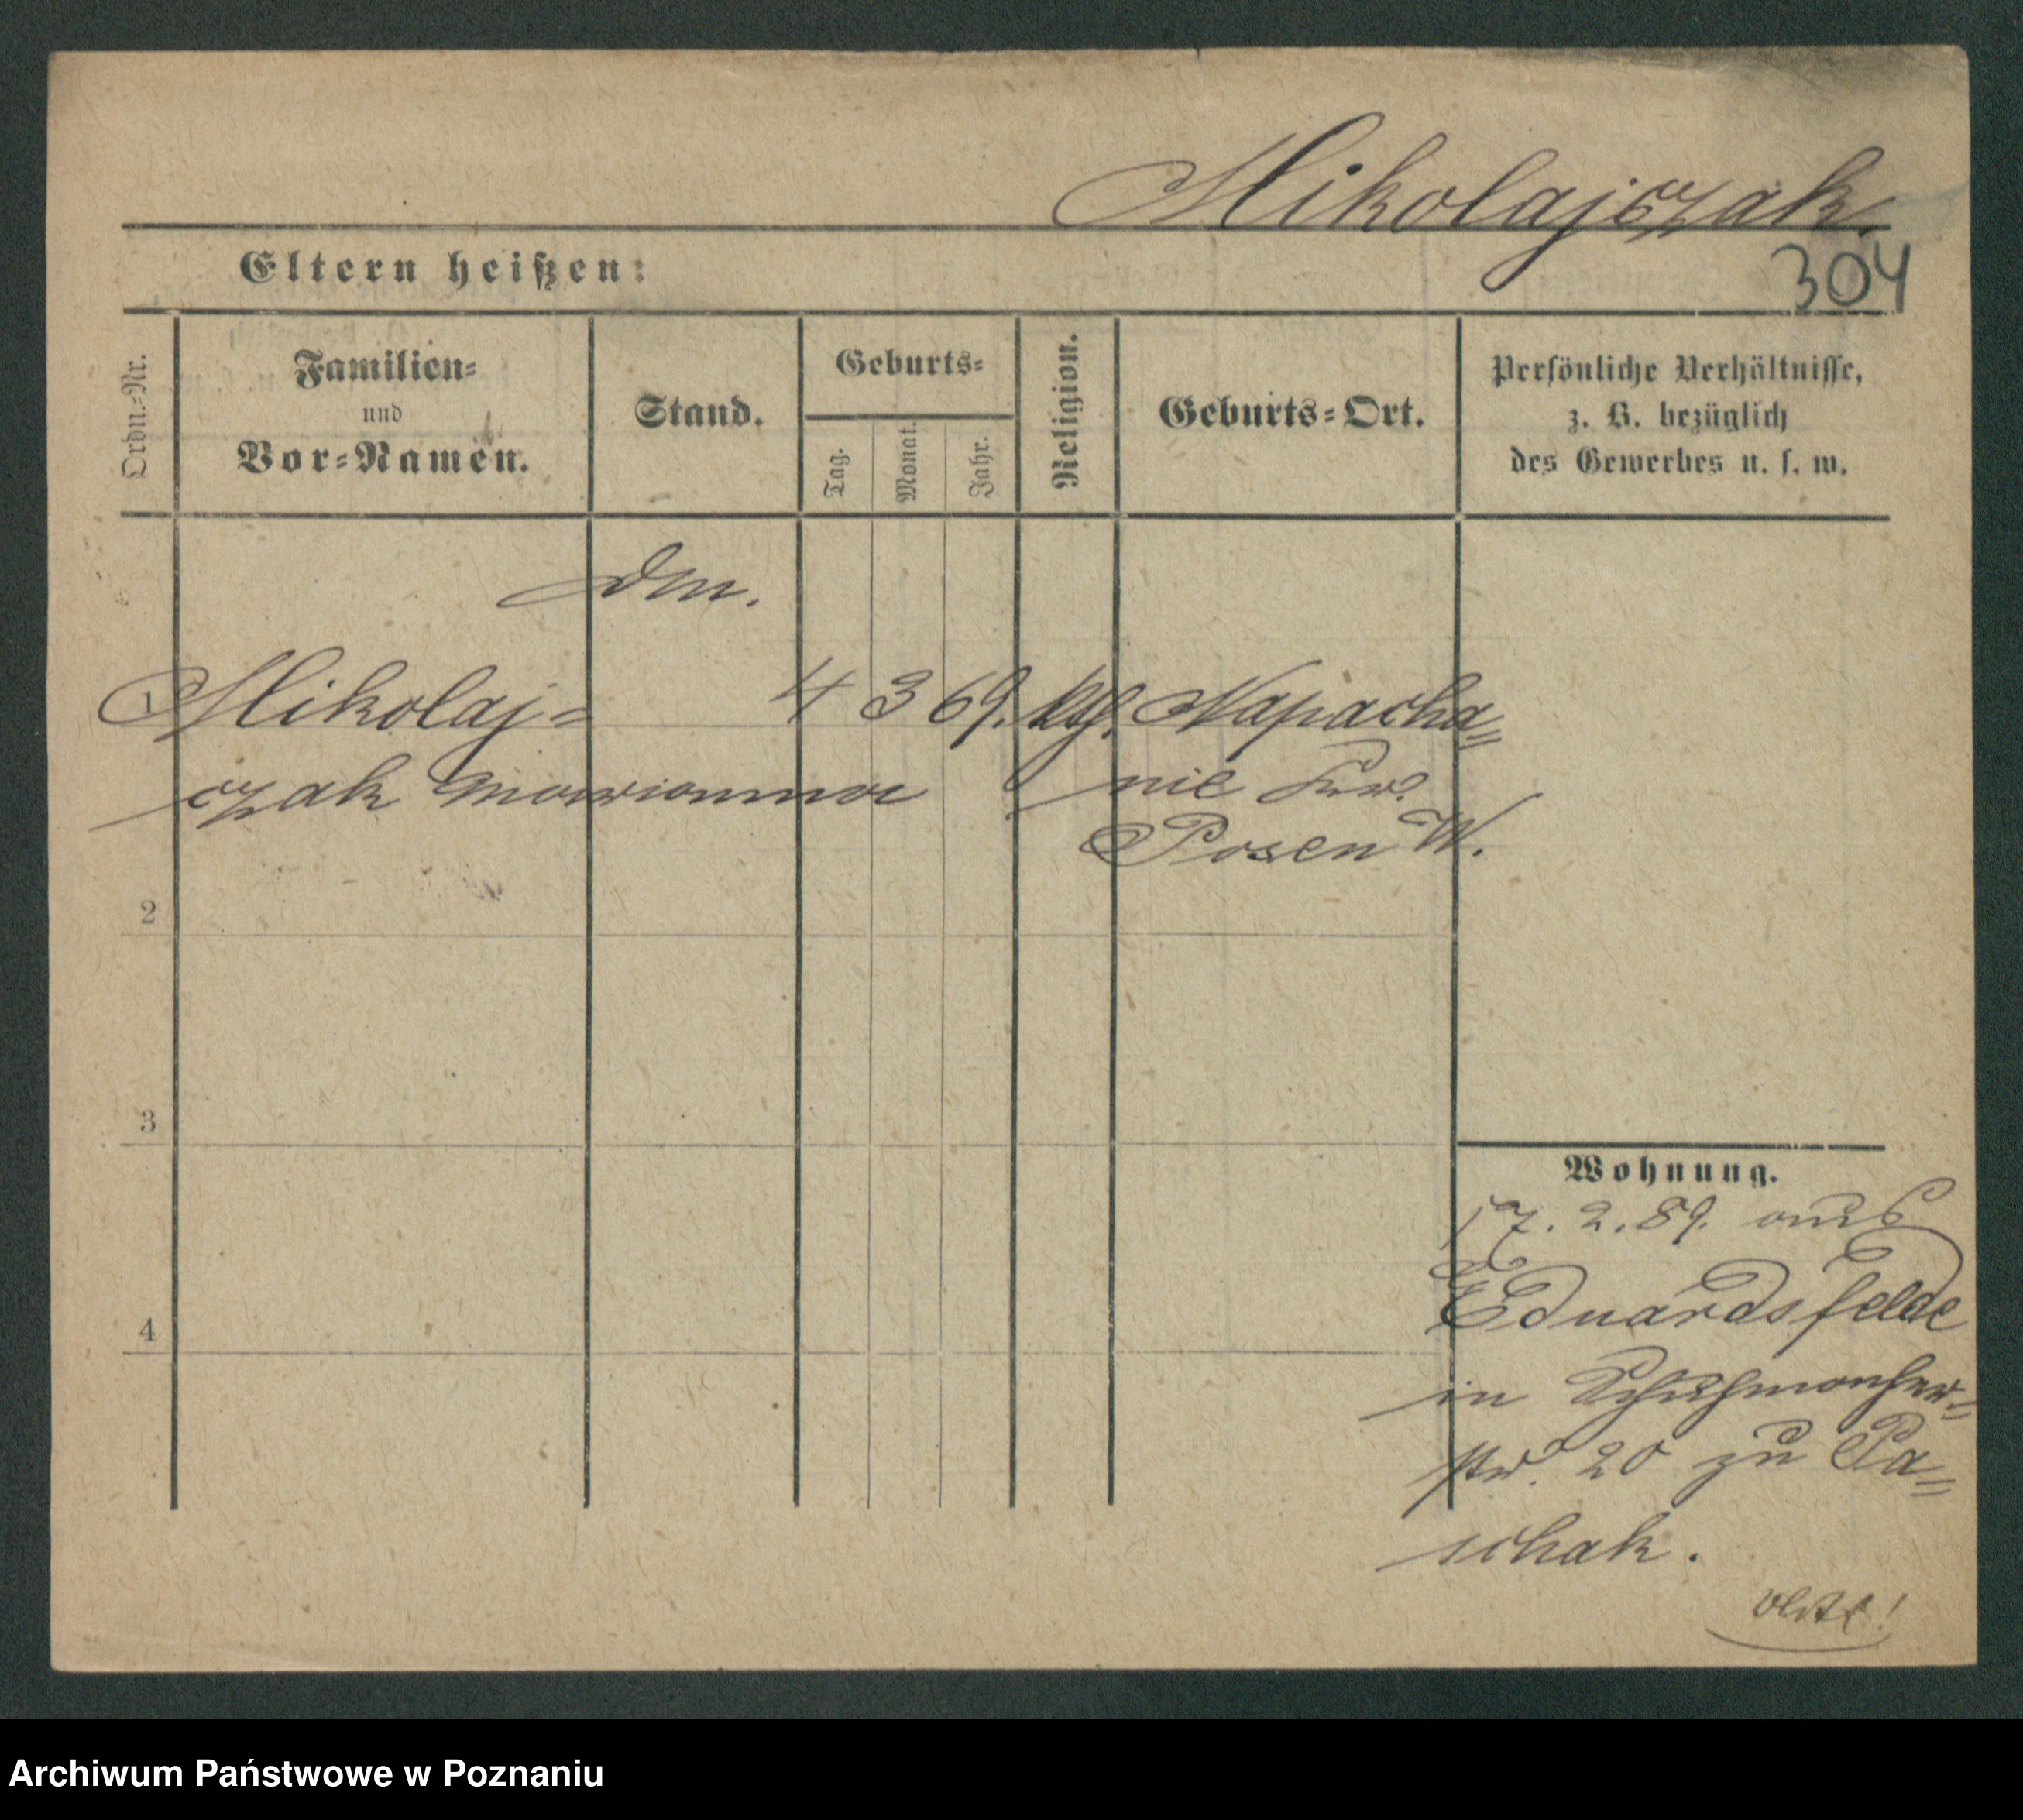 Mikolajczak.
304
Eltern heißen:
Ordn.-Nr.
Familien-
und
Vor-Namen.
Stand.
Geburts-
Tag.
Monat.
Jahr.
Religion.
Geburts-Ort.
Persönliche Verhältnisse,
z. B. bezüglich
des Gewerbes u. s. w.
1 Mikolaj- 4 3 69. kth. Napacha-
czak Marianna nie Kr.
Posen W.
2
3
4
Wohnung.
17. 2. 89. aus
Eduardsfelde
in Schuhmacher-
str. 20 zu Pa-
schak.
Archiwum Państwowe w Poznaniu